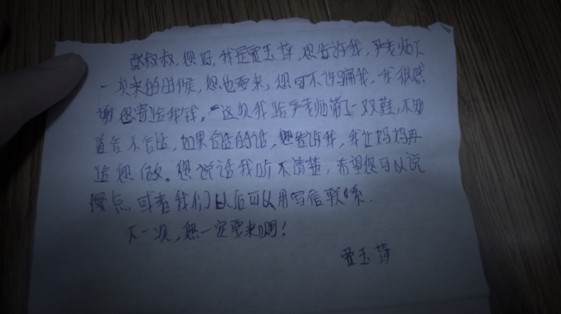 张叔叔,您好,我是贾玉萍,您告诉我,严老师下
一次来的时候,您也要来,您可不许骗我。我很感
谢您寄给我钱。这次我给严老师第一双鞋,不知
道合不合适,如果合适的话,您告诉我,我让妈妈再
给您做。您说话我听不清楚,希望您可以说
慢点,或者我们以后可以用写信联系。
下一次,您一定要来啊!
玉萍